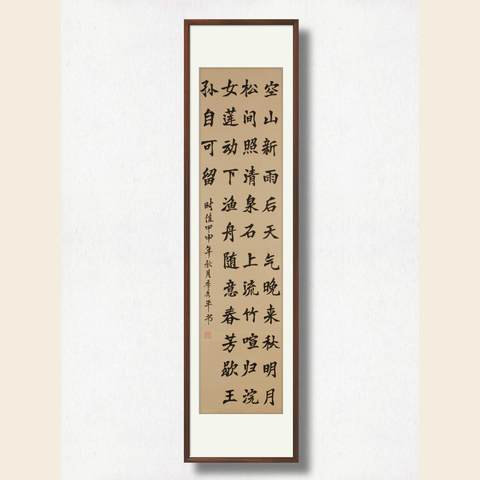 空山新雨后天气晚来秋明月
松间照清泉石上流竹喧归浣
女莲动下渔舟随意春芳歇王
孙自可留
时值甲申年秋月